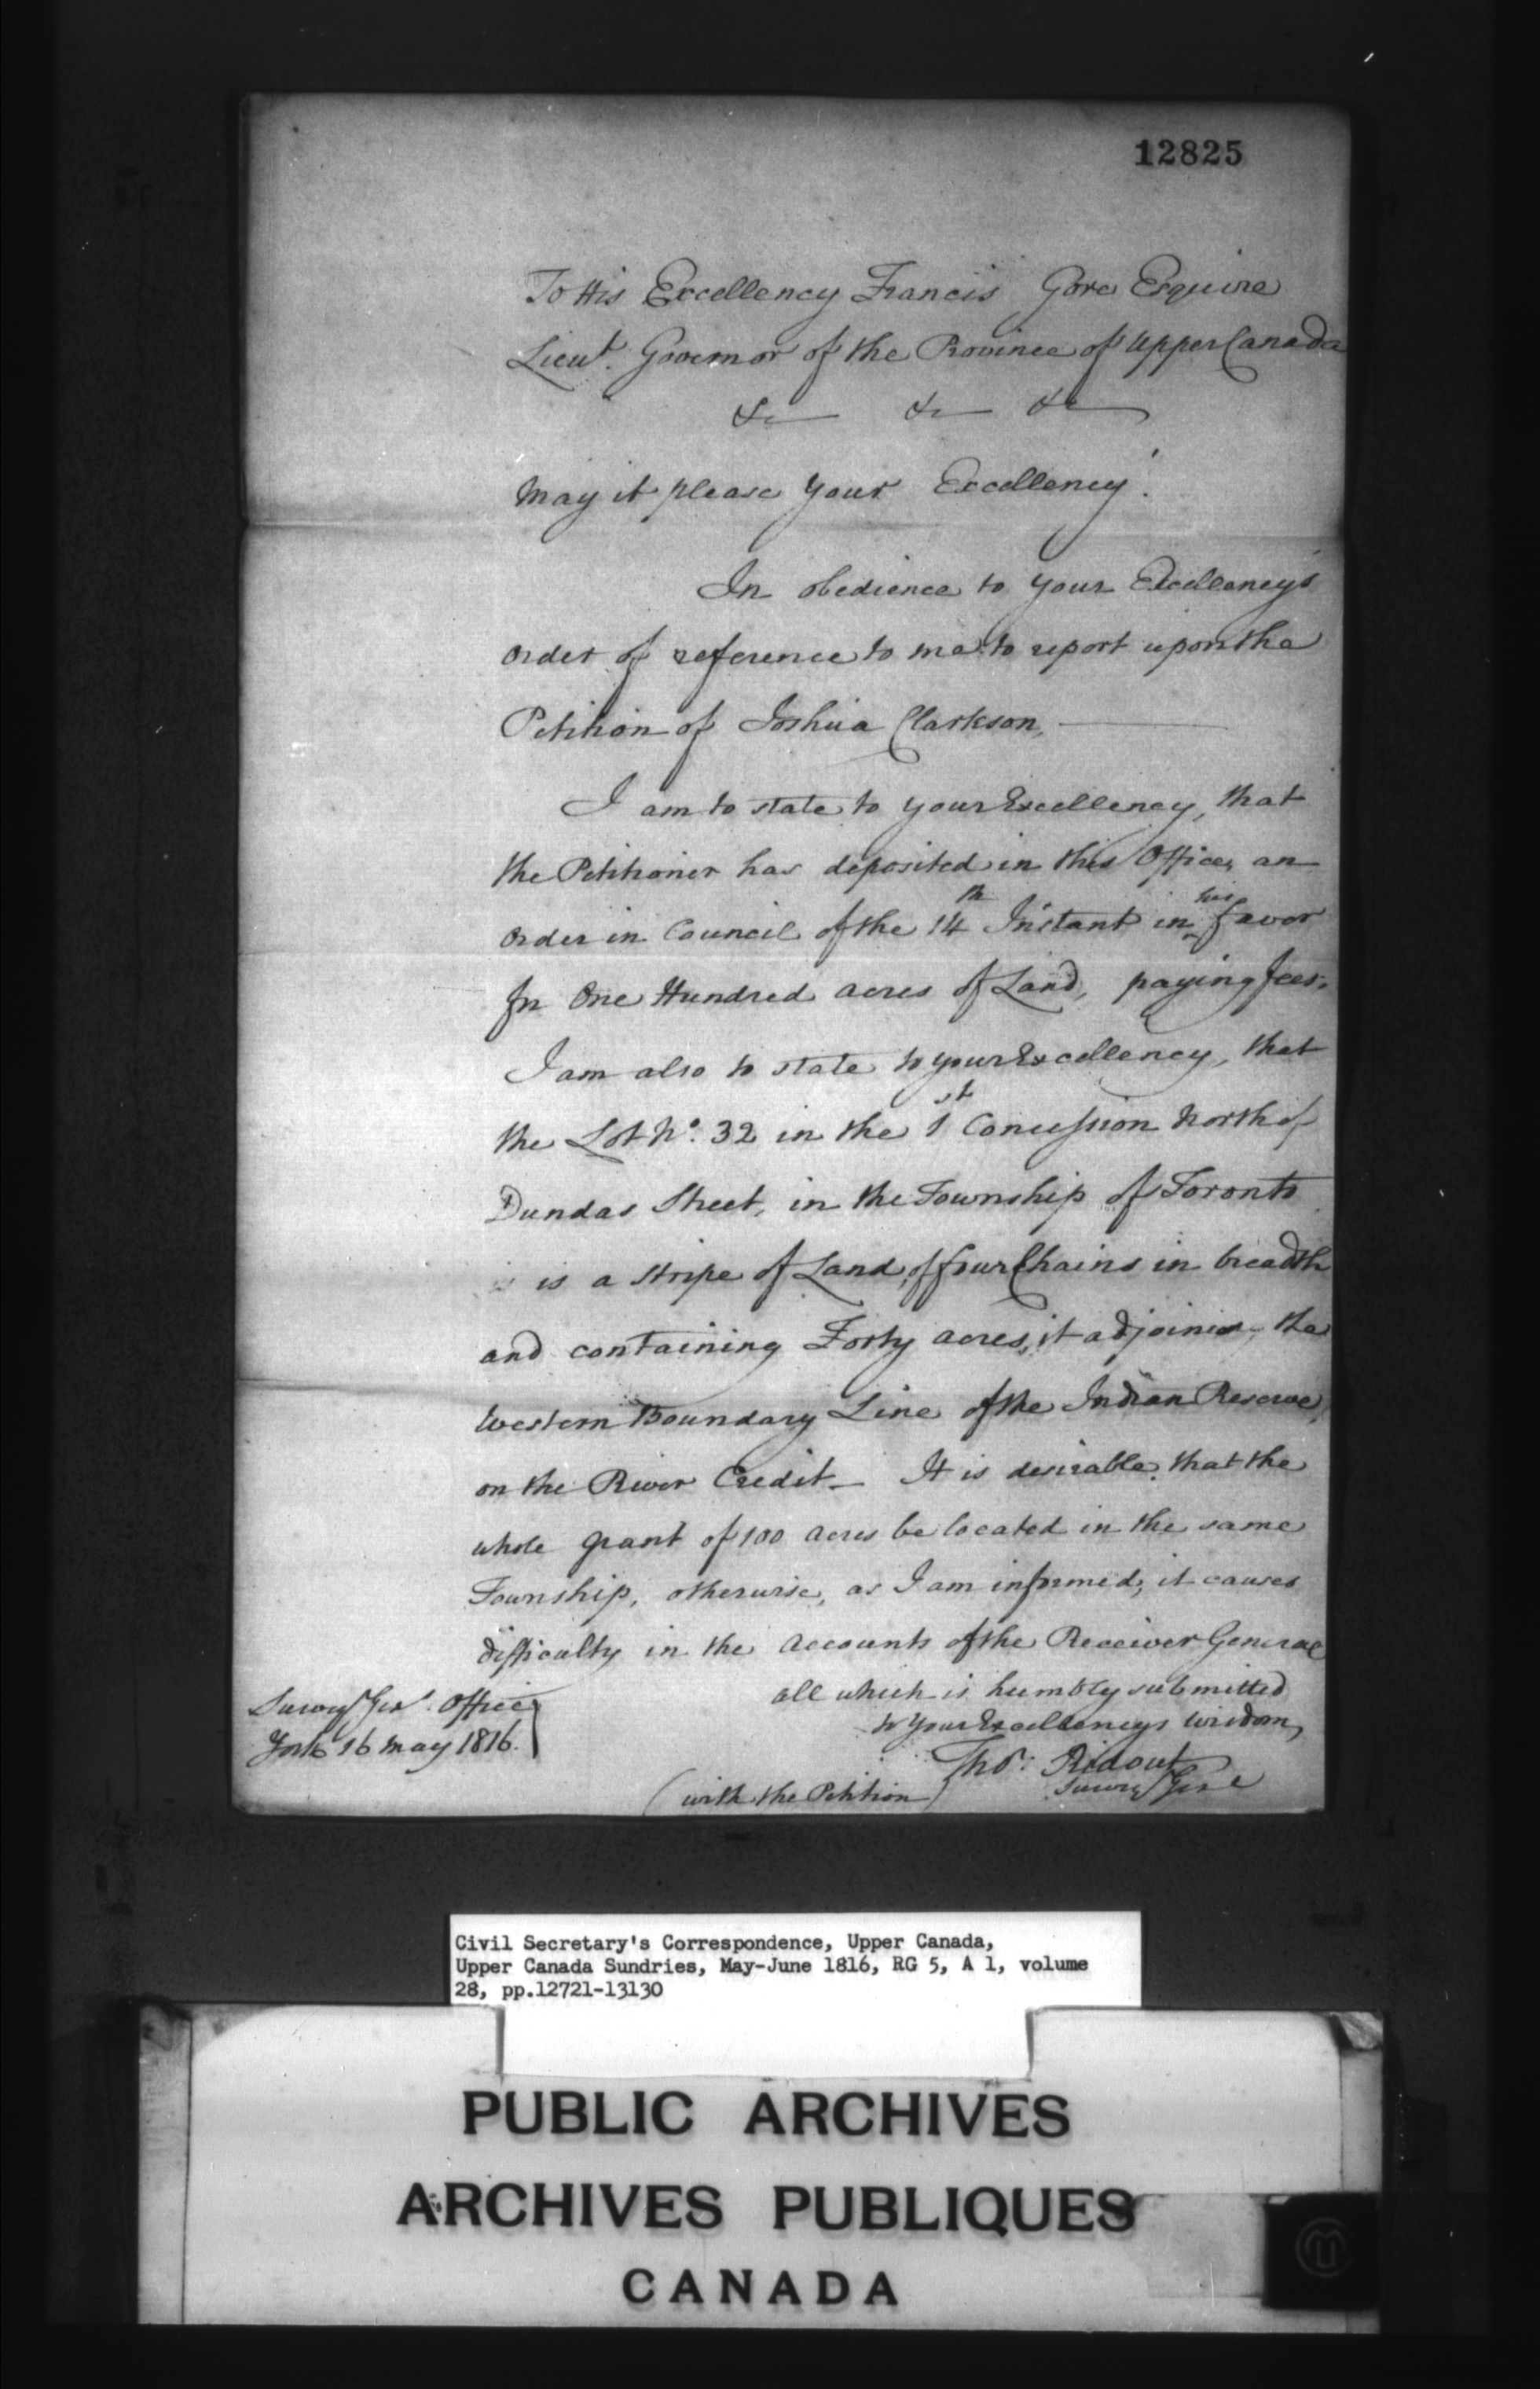 12825
To His Excellency Francis Gore Esquire
Lieut. Governor of the Province of Upper Canada
&c &c &c
May it please Your Excellency!
In obedience to Your Excellency's
order of reference to me to report upon the
Petition of Joshua Clarkson,
I am to state to your Excellency, that
the Petitioner has deposited in this Office, an
Order in Council of the 14th Instant in his favor
for One Hundred acres of Land, paying fees.
I am also to state to your Excellency, that
the Lot No. 32 in the 1st Concession North of
Dundas Street, in the Township of Toronto
is a stripe of Land, of four Chains in breadth
and containing Forty acres, it adjoins, the
Western Boundary Line of the Indian Reserve,
on the River Credit_ It is desirable that the
whole grant of 100 acres be located in the same
Township, otherwise, as I am informed, it causes
difficulty in the Accounts of the Receiver General
all which is humbly submitted
to Your Excellencys wisdom,
Survy Genl. Office
York 16 May 1816.
Thos. Ridout
Survy Genl
(with the Petition)
Civil Secretary's Correspondence, Upper Canada,
Upper Canada Sundries, May-June 1816, RG 5, A 1, volume
28, pp.12721-13130
PUBLIC ARCHIVES
ARCHIVES PUBLIQUES
CANADA